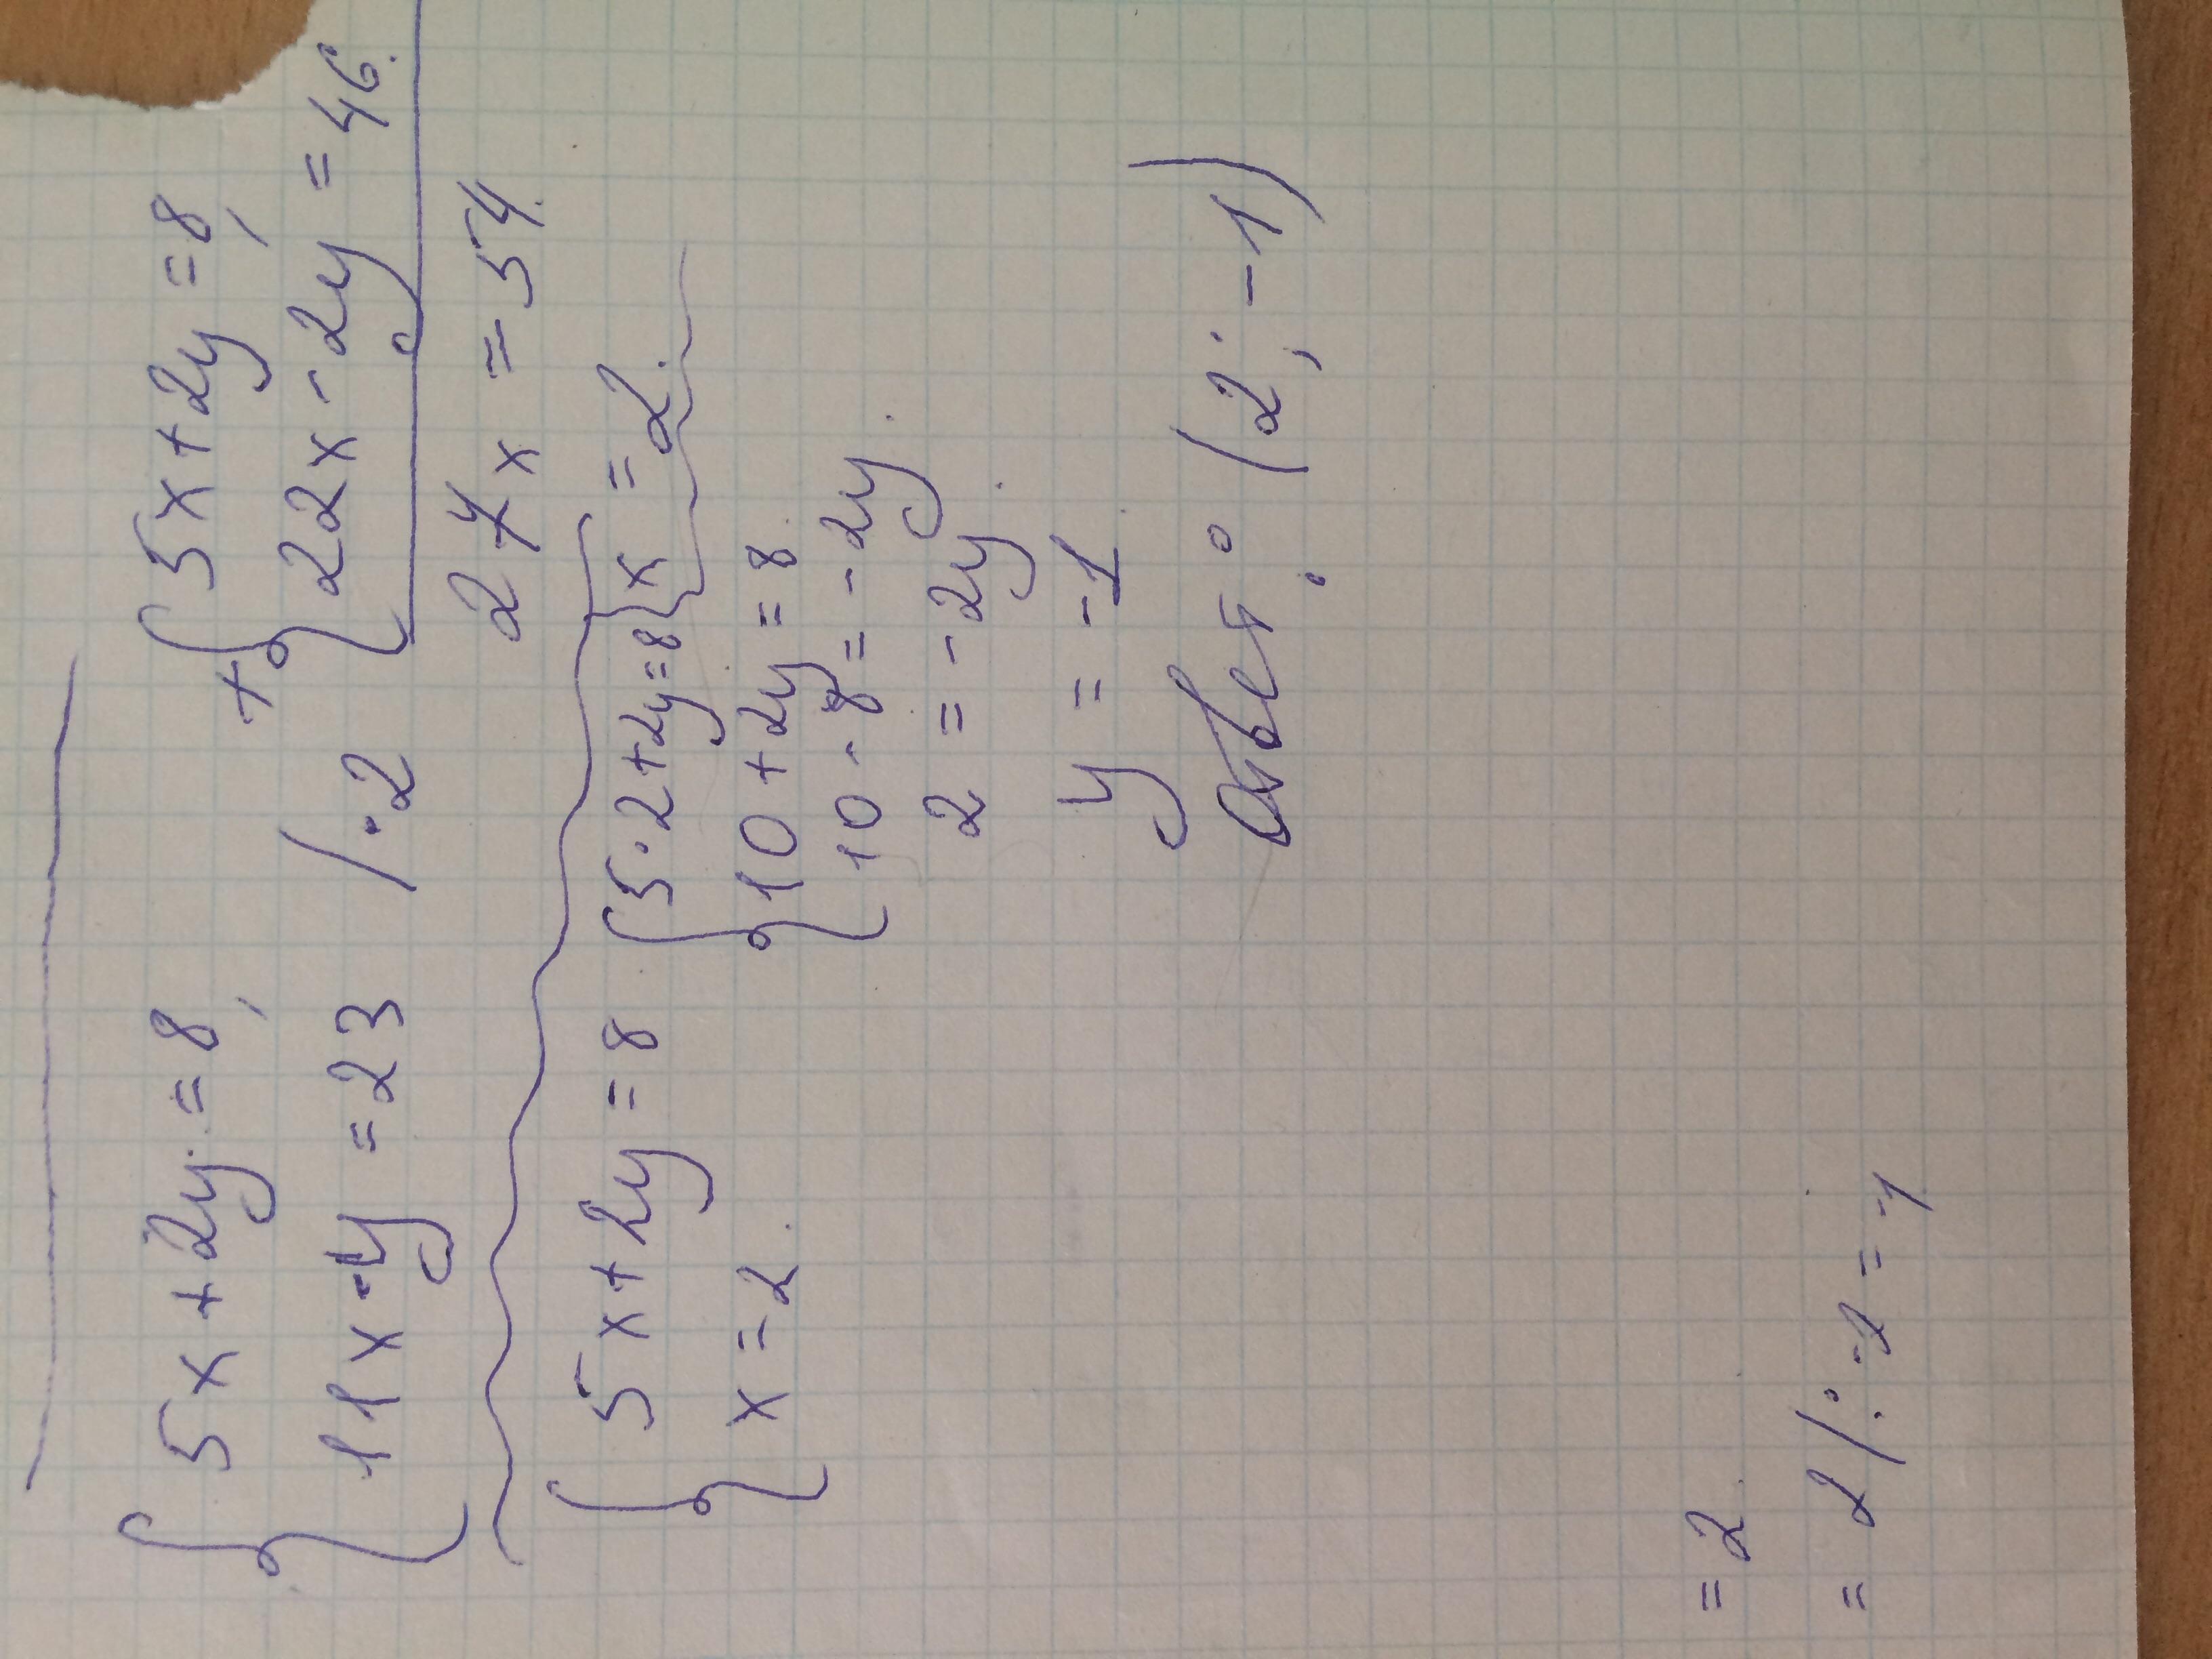 5x+2y=8,
11x-y=23 /·2
+ 5x+2y=8,
22x-2y=46.
27x=54.
x=2.
5x+2y=8
x=2.
5·2+2y=8
10+2y=8.
10-8=-2y.
2=-2y.
y=-1.
Ответ: (2;-1)
=2.
=2/: